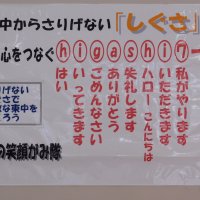 中からさりげない『しぐさ』
心をつなぐ ⓗⓘⓖⓐⓢⓗⓘ⑦
私がやります
いただきます
ハロー こんにちは
失礼します
ありがとう
ごめんなさい
いってきます
はい
りげない
さで
な東中を
ろう
の笑顔がみ隊